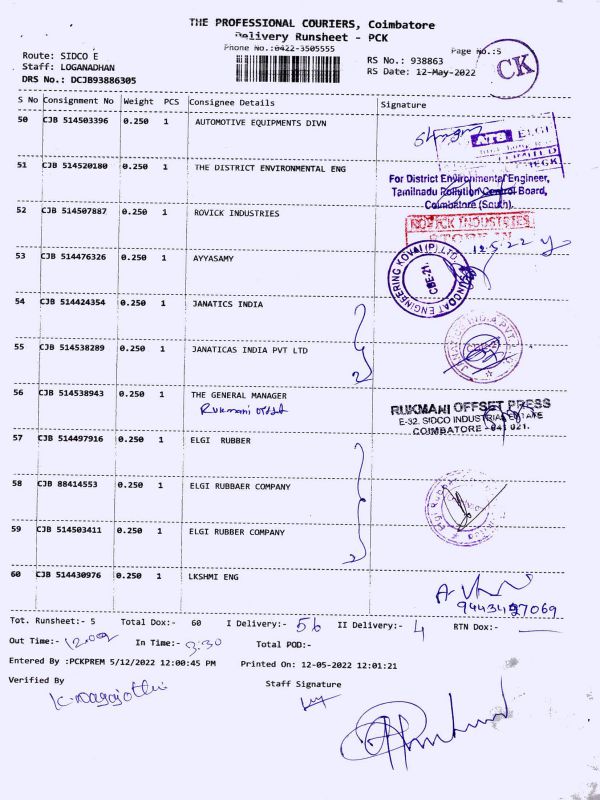 THE PROFESSIONAL COURIERS, Coimbatore
Delivery Runsheet - PCK
Phone No.:0422-3505555
Page No.:5
CK
Route: SIDCO E
Staff: LOGANADHAN
DRS No.: DCJB93886305
RS No.: 938863
RS Date: 12-May-2022
S No Consignment No Weight PCS Consignee Details Signature
50 CJB 514503396 0.250 1 AUTOMOTIVE EQUIPMENTS DIVN
ELGI
LIMITED
51 CJB 514520180 0.250 1 THE DISTRICT ENVIRONMENTAL ENG
For District Environmental Engineer,
Tamilnadu Pollution Control Board,
Coimbatore (South).
52 CJB 514507887 0.250 1 ROVICK INDUSTRIES
ROVICK INDUSTRIES
12.5.22
53 CJB 514476326 0.250 1 AYYASAMY
SUNCOAT ENGINEERING KOVAI (P) LTD.
CBE-21.
54 CJB 514424354 0.250 1 JANATICS INDIA
JANATICS INDIA PVT LTD
55 CJB 514538289 0.250 1 JANATICAS INDIA PVT LTD
2
56 CJB 514538943 0.250 1 THE GENERAL MANAGER
Rukmani offset
RUKMANI OFFSET PRESS
E-32. SIDCO INDUSTRIAL ESTATE
COIMBATORE - 641 021.
57 CJB 514497916 0.250 1 ELGI RUBBER
58 CJB 88414553 0.250 1 ELGI RUBBAER COMPANY
Elgi Rubber
59 CJB 514503411 0.250 1 ELGI RUBBER COMPANY
2
60 CJB 514430976 0.250 1 LKSHMI ENG
9443497069
Tot. Runsheet:- 5 Total Dox:- 60 I Delivery:- 56 II Delivery:- 4 RTN Dox:-
Out Time:- 12.00 In Time:- 3:30 Total POD:-
Entered By :PCKPREM 5/12/2022 12:00:45 PM Printed On: 12-05-2022 12:01:21
Verified By Staff Signature